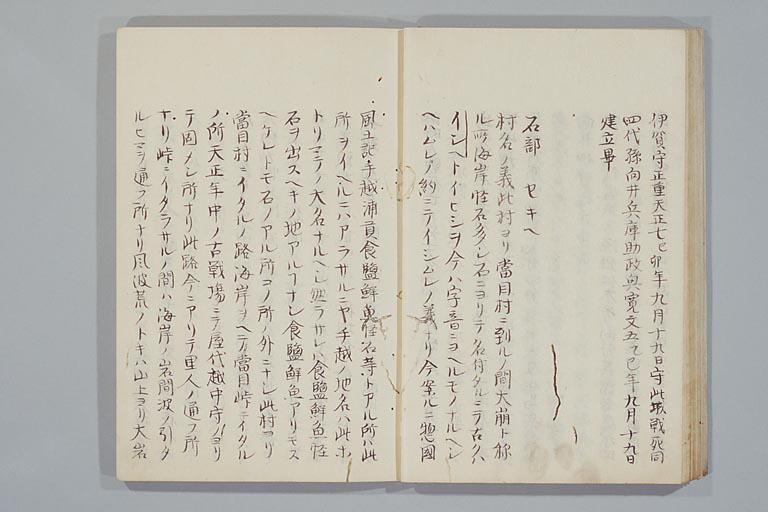 伊賀守正重天正七己卯年九月十九日守此城戦死同
四代孫向井兵庫助政興寛文五乙巳年九月十九日
建立畢
石部 セキヘ
村名ノ義此村ヨリ當目村ニ到ルノ間大崩ト称
ル所海岸怪石多シ石ニヨリテ名付タルニテ古クハ
インヘトイヒシヲ今ハ字音ニヨヘルモノナルヘシ
ヘハムレノ約ニテイシムレノ義ナリ今案ルニ惣國
風土記手越浦貢食鹽鮮魚怪石等トアル所ハ此
所ヲイヘルニハアラサルニヤ手越ノ地名ハ此ホ
トリマテノ大名ナルヘシ然ラサレハ食鹽鮮魚怪
石ヲ出スヘキノ地アルヿナシ食鹽鮮魚アリモス
ヘケレトモ石ノアル所コノ所ノ外ニナシ此村ヨリ
當目村ニイタルノ路海岸ヲヘテ當目峠ニイタル
ノ所天正年中ノ古戦場ニテ屋代越中守ノヨリ
テ固メシ所ナリ此路今ニアリテ里人ノ通フ所
ナリ峠ニイタラサルノ間ハ海岸ノ岩間波ノ引タ
ルヒマヲ通フ所ナリ風波荒ノトキハ山上ヨリ大岩